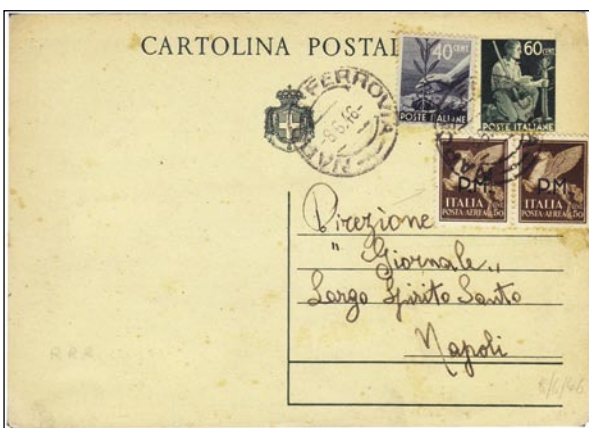 CARTOLINA POSTAL
40 CENT.
POSTE ITALIANE
60 CENT
POSTE ITALIANE
FERROVIA
-8.6.46-
DM
ITALIA
POSTA AEREA
50
DM
ITALIA
POSTA AEREA
50
Direzione
" Giornale "
Largo Spirito Santo
Napoli
R R R
8/6/46